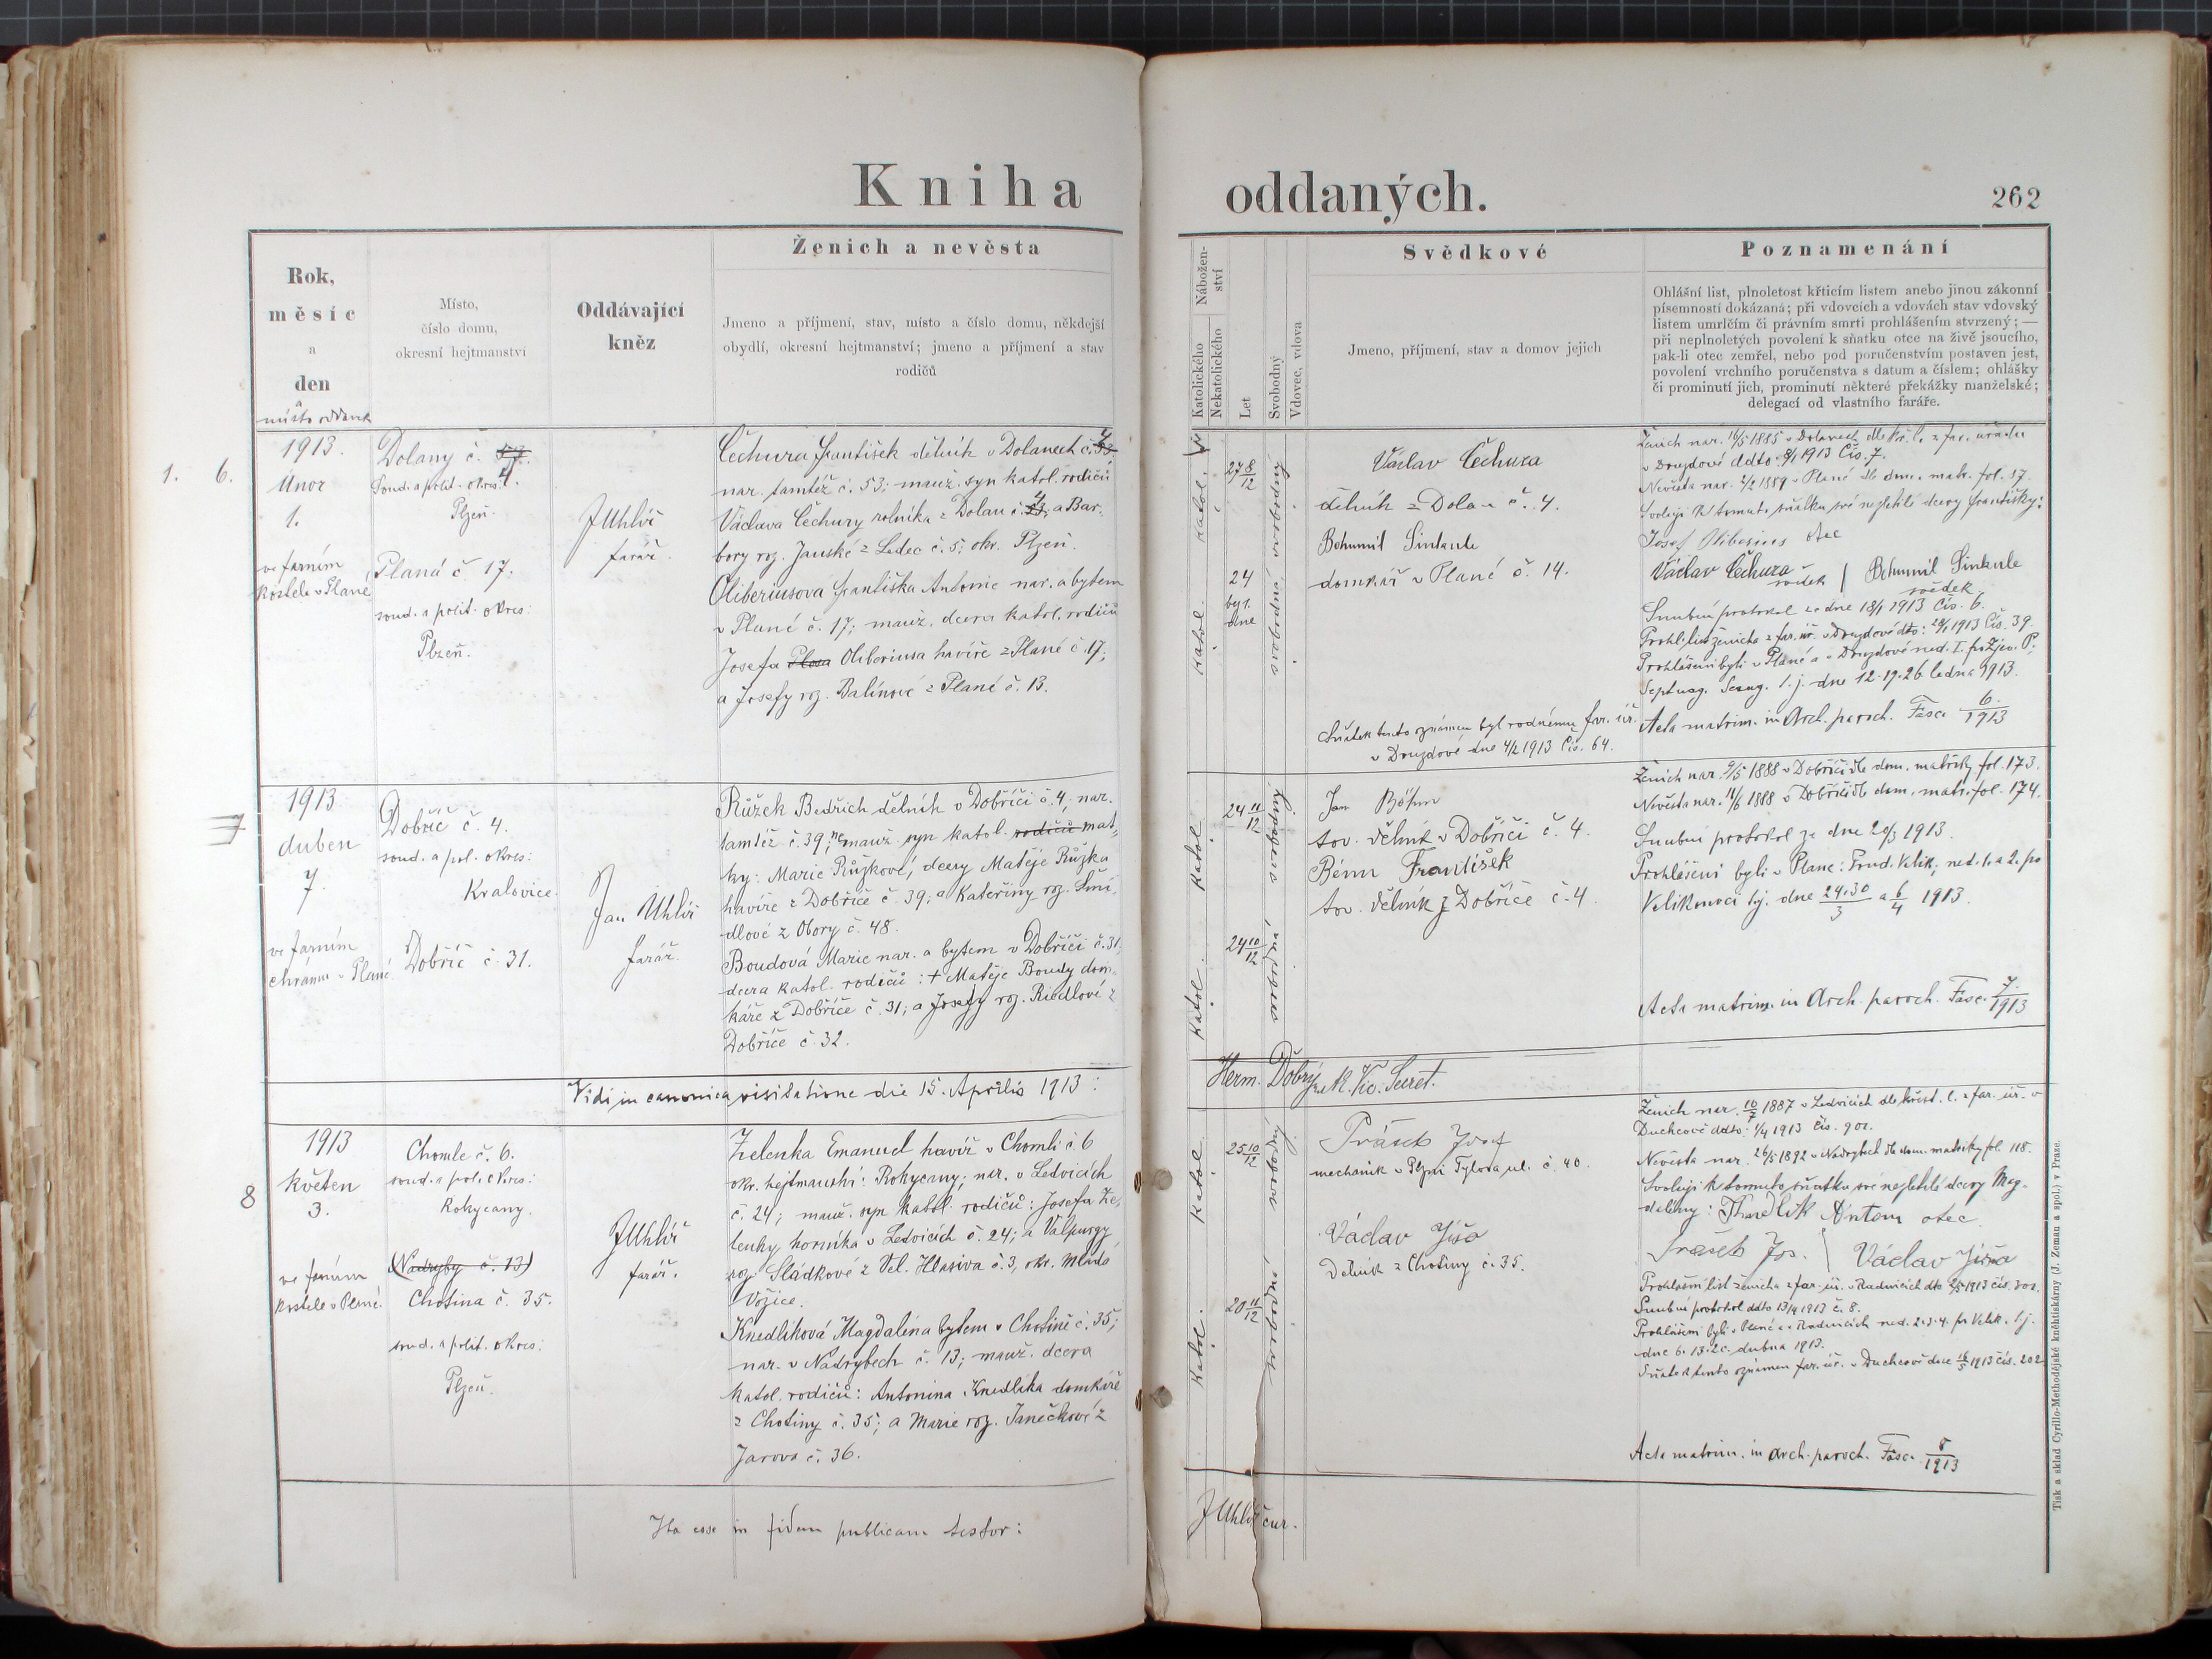 Kniha oddaných.
262
Rok,
měsíc
a
den
a
místo oddavek
Místo,
číslo domu,
okresní hejtmanství
Oddávající
kněz
Ženich a nevěsta
Jmeno a příjmení, stav, místo a číslo domu, někdejší
obydlí, okresní hejtmanství; jmeno a příjmení a stav
rodičů
Nábožen-
ství
Katolického
Nekatolického
Let
Svobodný
Vdovec, vdova
Svědkové
Jmeno, příjmení, stav a domov jejich
Poznamenání
Ohlášní list, plnoletost křticím listem anebo jinou zákonní
písemností dokázaná; při vdovcích a vdovách stav vdovský
listem umrlčím či právním smrti prohlášením stvrzený; —
při neplnoletých povolení k sňatku otce na živě jsoucího,
pak-li otec zemřel, nebo pod poručenstvím postaven jest,
povolení vrchního poručenstva s datum a číslem; ohlášky
či prominutí jich, prominutí některé překážky manželské;
delegací od vlastního faráře.
1. 6.
1913.
Únor
1.
ve farním
kostele v Plané
Dolany č. 53. 4.
Soud. a polit. okres:
Plzeň.
Planá č. 17.
soud. a polit. okres:
Plzeň.
JUhlíř
farář.
Čechura František dělník v Dolanech č. 53 4
nar. tamtéž č. 53; manž. syn katol. rodičů
Václava Čechury rolníka z Dolan č. 53 4; a Bar-
bory roz. Janské z Ledec č. 5; okr. Plzeň.
Oliberiusova Františka Antonie nar. a bytem
v Plané č. 17; manž. dcera katol. rodičů
Josefa Oliberiusa havíře z Plané č. 17;
a Josefy roz. Balínové z Plané č. 13.
katol.
katol.
27 8/12
24
dne
svobodný
svobodná
Václav Čechura
dělník z Dolan č. 4.
Bohumil Sinkule
domkář v Plané č. 14.
Sňatek tento oznámen byl rodnému far. úř.
v Druzdové dne 4/2 1913 čís. 64.
Ženich nar. 16/5 1885 v Dolanech dle kř. l. z far. úřadu
v Druzdové ddto: 8/1 1913 čís. 7.
Nevěsta nar. 2/2 1889 v Plané dle dom. matr. fol. 17.
Svoluji k tomuto sňatku své nezletilé dcery Františky:
Josef Oliberius otec
Václav Čechura svědek | Bohumil Sinkule
svědek
Snubní protokol ze dne 18/1 1913 čís. 6.
Prohl. list ženicha z far. úř. v Druzdové dto: 29/1 1913 čís. 39.
Prohlášeni byli v Plané a v Druzdové ned. I. po Zjev. P.
Septuag. Sexag. t. j. dne 12. 19. 26. ledna 1913.
Acta matrim. in Arch. paroch. Fasc. 6/1913
7
1913
duben
7
ve farním
chrámu v Plané
Dobříč č. 4.
soud. a pol. okres:
Kralovice.
Dobříč č. 31.
Jan Uhlíř
farář.
Růžek Bedřich dělník v Dobříči č. 4; nar.
tamtéž č. 39; nemanž. syn katol. rodičů mat-
ky: Marie Růžkové, dcery Matěje Růžka
havíře z Dobříče č. 39; a Kateřiny roz. Šmí-
dlové z Obory č. 48.
Boudová Marie nar. a bytem v Dobříči č. 31;
dcera katol. rodičů: † Matěje Boudy dom-
káře z Dobříče č. 31; a Josefy roz. Riedlové z
Dobříče č. 32.
katol.
katol.
24 11/12
24 10/12
svobodný
svobodná
Jan Böhm
tov. dělník v Dobříči č. 4.
František
tov. dělník z Dobříče č. 4.
Ženich nar. 9/5 1888 v Dobříči dle dom. matriky fol. 173.
Nevěsta nar. 11/6 1888 v Dobříči dle dom. matr. fol. 174.
Snubní protokol ze dne 20/3 1913.
Prohlášeni byli v Plané: Pond. Velik; ned. 1. a 2. po
Velikonoci tj. dne 24.30/3 a 6/4 1913.
Acta matrim. in Arch. paroch. Fasc. 7./1913
Vidi in canonica visitatione die 15. Aprilis 1913:
Herm. Dobrý m. k. Vic. Secret.
8
1913
květen
3.
ve farním
kostele v Plané.
Chomle č. 6.
soud. a pol. okres:
Rokycany.
(Nadryby č. 13)
Chotina č. 35.
soud. a polit. okres:
Plzeň.
JUhlíř
farář.
Zelenka Emanuel havíř v Chomli č. 6
okr. hejtmanství: Rokycany; nar. v Ledvicích
č. 24; manž. syn katol. rodičů: Josefa Ze-
lenky horníka v Ledvicích č. 24; a Valpurgy
roz. Sládkové z Vel. Hlasiva č. 3, okr. Mladá
Vožice.
Knedlíková Magdalena bytem v Chotině č. 35;
nar. v Nadrybech č. 13; manž. dcera
katol. rodičů: Antonína Knedlíka domkáře
z Chotiny č. 35; a Marie roz. Janečkové z
Jarova č. 36.
katol.
katol.
25 10/12
20 11/12
svobodný
svobodná
Prášek Josef
mechanik v Plzni Tylova ul. č. 40.
Václav Jíša
Dělník z Chotiny č. 35.
Ženich nar. 10/7 1887 v Ledvicích dle křest. l. z far. úř. v
Duchcově ddto: 1/4 1913 čís. 902.
Nevěsta nar. 26/5 1892 v Nadrybech dle dom. matriky fol. 118.
Svoluji k tomuto sňatku své nezletilé dcery Mag-
daleny: Knedlík Antonín otec
Prášek Jos. | Václav Jíša
Prohlašní list ženicha z far. úř. v Radnicích dto 2/5 1913 čís. 302.
Snubní protokol ddto 13/4 1913 č. 8.
Prohlášeni byli v Plané a v Radnicích ned. 2. 3. 4. po Velik. t. j.
dne 6. 13. 20. dubna 1913.
Sňatek tento oznámen far. úř. v Duchcově dne 16/5 1913 čís. 202
Acta matrim. in Arch. paroch. Fasc. 8/1913
Ita esse in fidem publicam testor:
JUhlíř cur.
Tisk a sklad Cyrillo-Methodějské kněhtiskárny (J. Zeman a spol.) v Praze.